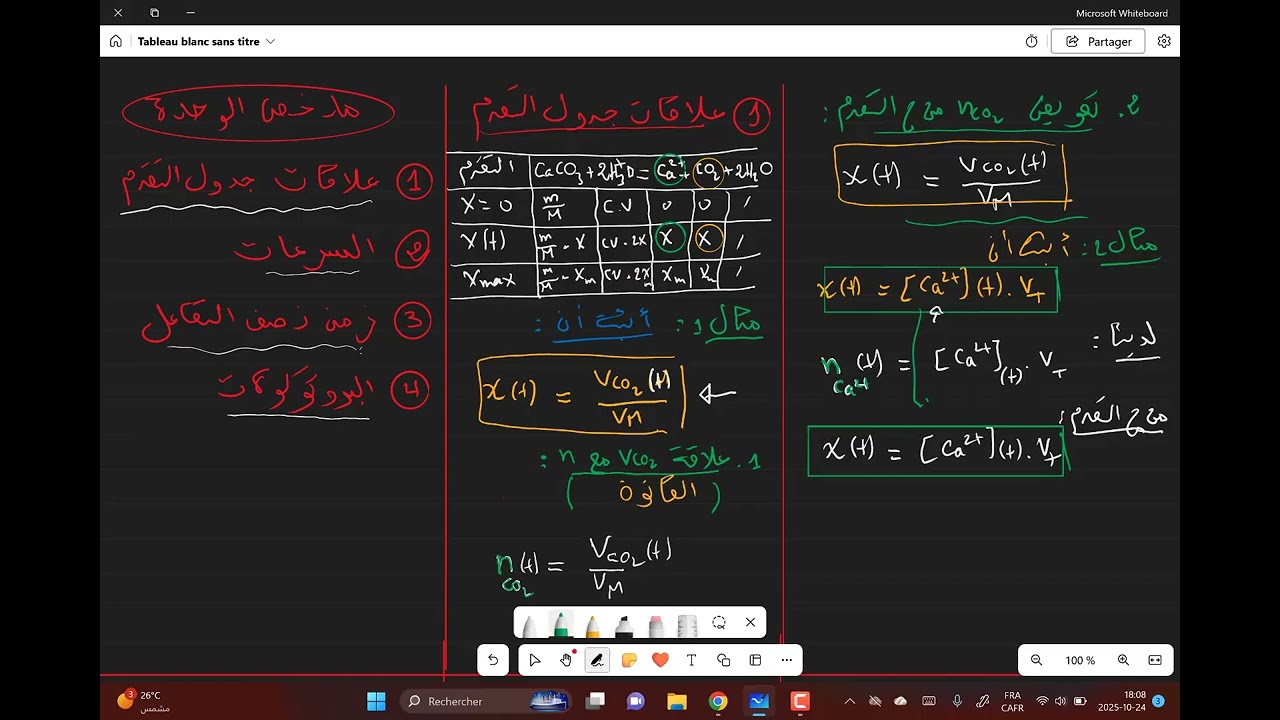 Microsoft Whiteboard
Tableau blanc sans titre
Partager
ملخص الوحدة
① علاقات جدول التقدم
② السرعات
③ زمن نصف التفاعل
④ البروتوكولات
① علاقات جدول التقدم
التقدم | CaCO₃ + 2H₃O⁺ = Ca²⁺ + CO₂ + 2H₂O
X = 0 | m/M | C.V | 0 | 0 | /
X(t) | m/M - X | CV - 2X | X | X | /
Xmax | m/M - Xm | CV - 2Xm | Xm | Xm | /
مثال 1: أثبت أن:
X(t) = VCO₂(t) / VM
1. علاقة VCO₂ مع n:
(القانون)
nCO₂(t) = VCO₂(t) / VM
2. تعويض nCO₂ مع التقدم:
X(t) = VCO₂(t) / VM
مثال 2: أثبت أن
X(t) = [Ca²⁺](t) . VT
لدينا:
nCa²⁺(t) = [Ca²⁺](t) . VT
مع التقدم:
X(t) = [Ca²⁺](t) . VT
100 %
3
26°C
مشمس
Rechercher
FRA
CAFR
18:08
2025-10-24
3